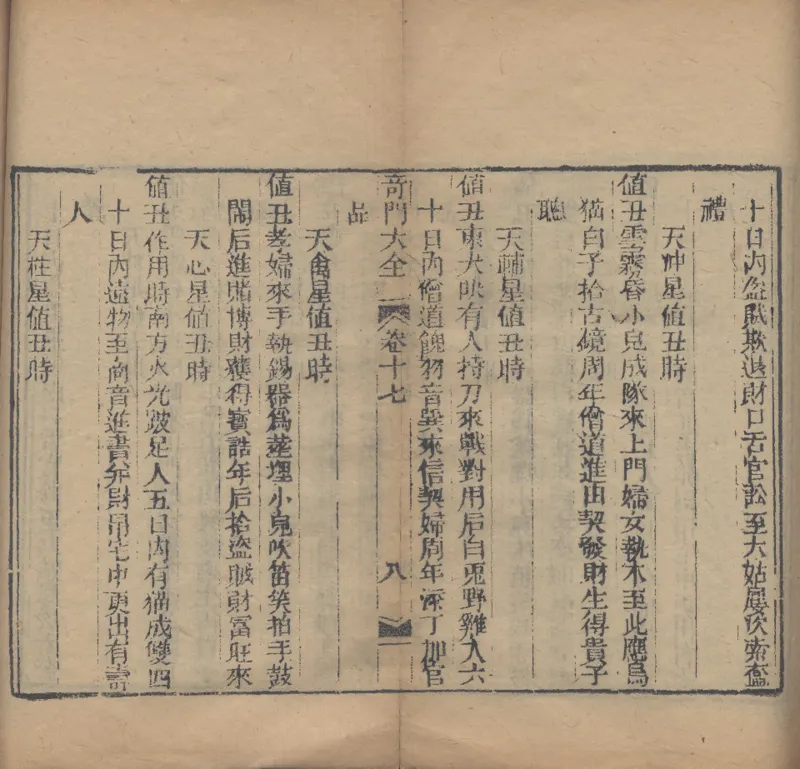 十日內盜賊欺退財口舌官訟至大姑屢次索盔
禮
天冲星值丑時
值丑雲霧昏小兒成隊來上門婦女執木至此應烏
猫白子拾古鏡周年僧道進由契發財生得貴子
聰
天輔星值丑時
值丑東犬吠有人持刀來戰對用后白兎野雞入六
十日內僧道餽物音巽來信契婦周年添丁加官
奇門大全 卷十七 八
品
天禽星值丑時
值丑孝婦來手執錫器爲塟埋小兒吹笛笑拍手鼓
鬧后進賭博財獲得寳誥年后拾盜賊財富旺來
天心星值丑時
值丑作用時南方火光跛足人五日內有猫成雙四
十日內遠物至商音進書弁財帛宅中更出有壽
人
天柱星值丑時